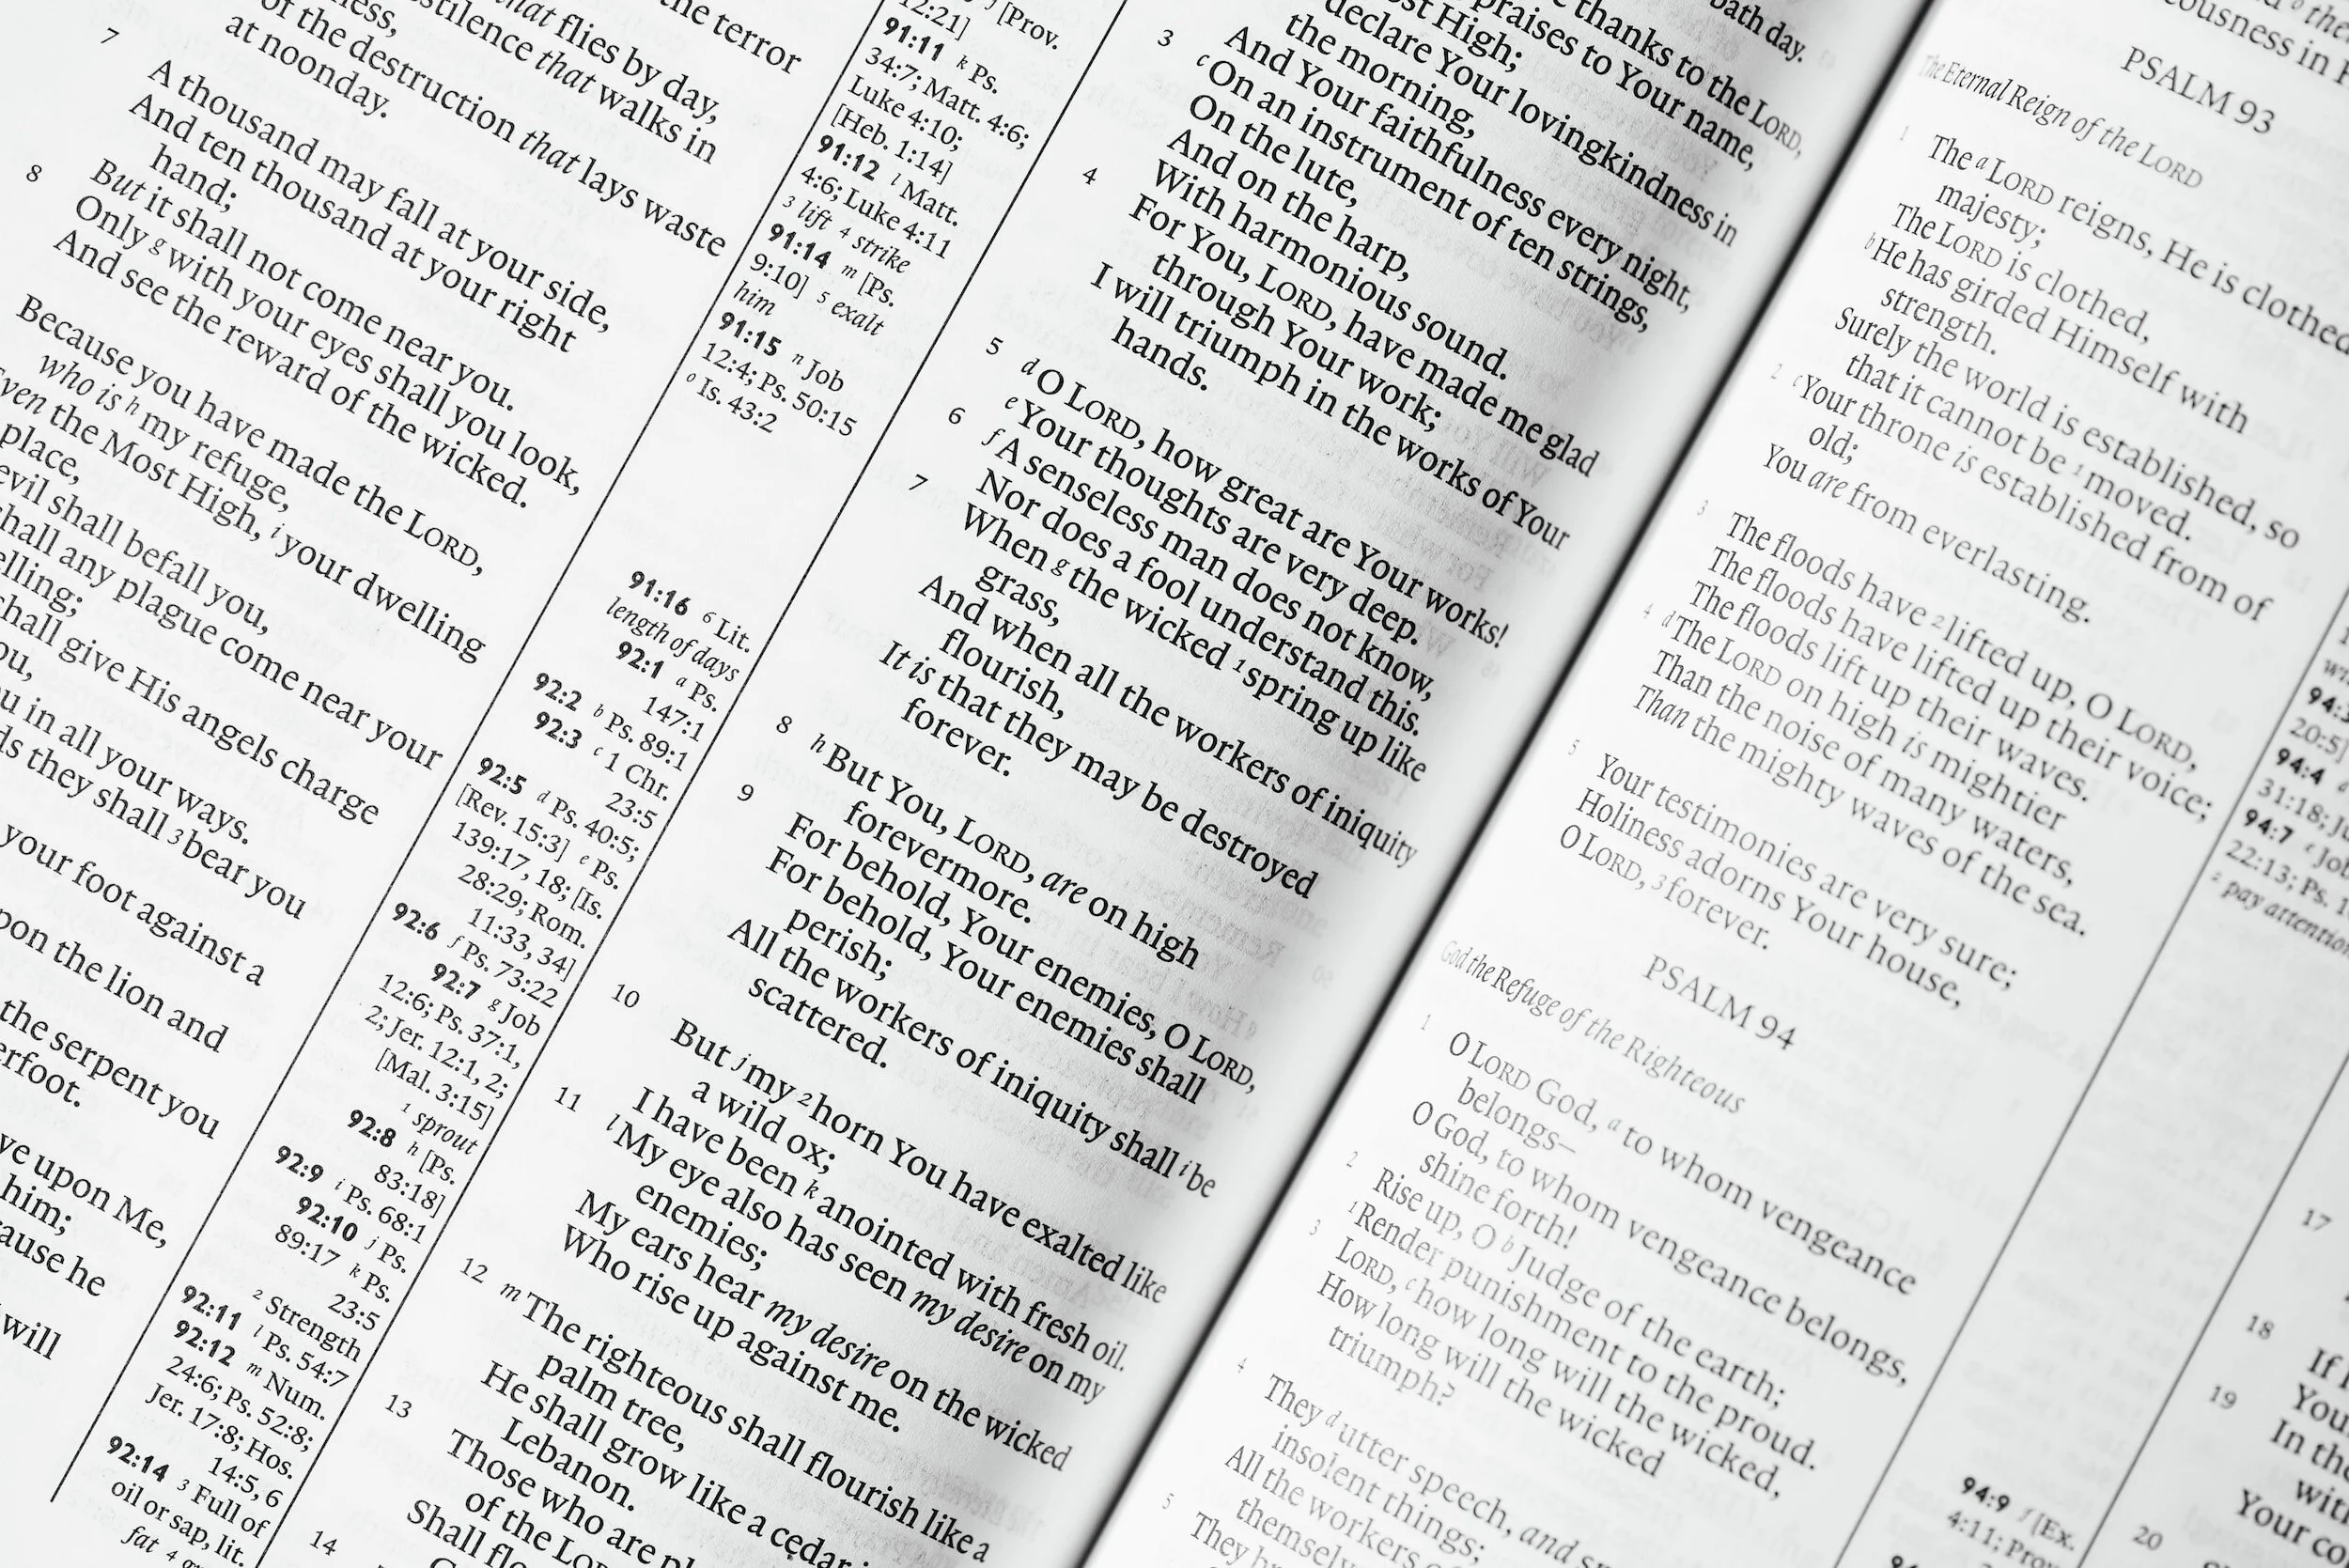 the terror
that flies by day,
that walks in
of the destruction that lays waste
at noonday.
7 A thousand may fall at your side,
And ten thousand at your right
hand;
8 But it shall not come near you.
Only g with your eyes shall you look,
And see the reward of the wicked.
Because you have made the LORD,
who is h my refuge,
the Most High, i your dwelling
place,
evil shall befall you,
shall any plague come near your
shall give His angels charge
in all your ways.
they shall 3 bear you
your foot against a
the lion and
the serpent you
upon Me,
him;
he
will
12:21] j [Prov.
91:11 k Ps.
34:7; Matt. 4:6;
Luke 4:10;
[Heb. 1:14]
91:12 l Matt.
4:6; Luke 4:11
3 lift 4 strike
91:14 m [Ps.
9:10] 5 exalt
him
91:15 n Job
12:4; Ps. 50:15
o Is. 43:2
91:16 6 Lit.
length of days
92:1 a Ps.
147:1
92:2 b Ps. 89:1
92:3 c 1 Chr.
23:5
92:5 d Ps. 40:5;
[Rev. 15:3] e Ps.
139:17, 18; [Is.
28:29; Rom.
11:33, 34]
92:6 f Ps. 73:22
92:7 g Job
12:6; Ps. 37:1,
2; Jer. 12:1, 2;
[Mal. 3:15]
1 sprout
92:8 h [Ps.
83:18]
92:9 i Ps. 68:1
92:10 j Ps.
89:17 k Ps.
23:5
2 Strength
92:11 l Ps. 54:7
92:12 m Num.
24:6; Ps. 52:8;
Jer. 17:8; Hos.
14:5, 6
92:14 3 Full of
oil or sap, lit.
fat 4
day.
thanks to the LORD,
praises to Your name,
High;
declare Your lovingkindness in
the morning,
And Your faithfulness every night,
3 c On an instrument of ten strings,
On the lute,
And on the harp,
With harmonious sound.
4 For You, LORD, have made me glad
through Your work;
I will triumph in the works of Your
hands.
5 d O LORD, how great are Your works!
e Your thoughts are very deep.
6 f A senseless man does not know,
Nor does a fool understand this.
7 When g the wicked 1 spring up like
grass,
And when all the workers of iniquity
flourish,
It is that they may be destroyed
forever.
8 h But You, LORD, are on high
forevermore.
9 For behold, Your enemies, O LORD,
For behold, Your enemies shall
perish;
All the workers of iniquity shall i be
scattered.
10 But j my 2 horn You have exalted like
a wild ox;
I have been k anointed with fresh oil.
11 l My eye also has seen my desire on my
enemies;
My ears hear my desire on the wicked
Who rise up against me.
12 m The righteous shall flourish like a
palm tree,
He shall grow like a cedar
Lebanon.
13 Those who are
of the LORD
Shall
14
in
PSALM 93
The Eternal Reign of the LORD
1 The a LORD reigns, He is clothed
majesty;
The LORD is clothed,
b He has girded Himself with
strength.
Surely the world is established, so
that it cannot be 1 moved.
2 c Your throne is established from of
old;
You are from everlasting.
3 The floods have 2 lifted up, O LORD,
The floods have lifted up their voice;
The floods lift up their waves.
4 d The LORD on high is mightier
Than the noise of many waters,
Than the mighty waves of the sea.
5 Your testimonies are very sure;
Holiness adorns Your house,
O LORD, 3 forever.
PSALM 94
God the Refuge of the Righteous
1 O LORD God, a to whom vengeance
belongs—
O God, to whom vengeance belongs,
shine forth!
2 Rise up, O b Judge of the earth;
1 Render punishment to the proud.
3 LORD, c how long will the wicked,
How long will the wicked
triumph?
4 They d utter speech, and
insolent things;
All the workers
5 They
20:5]
94:4 d
31:18;
94:7 e Job
22:13; Ps.
2 pay attention
94:9 f [Ex.
4:11; Prov.
17
18 If
19
In the
Your
20